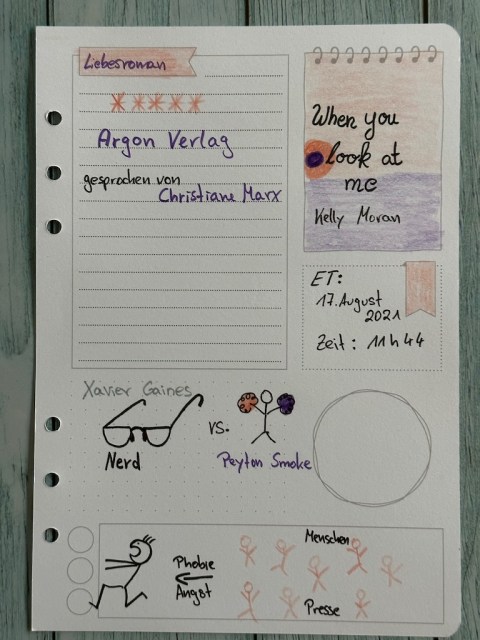 Liebesroman
Argon Verlag
gesprochen von
Christiane Marx
When you
look at
me
Kelly Moran
ET:
17. August
2021
Zeit: 11h44
Xavier Gaines
vs.
Nerd
Peyton Smoke
Phobie
Angst
Menschen
Presse